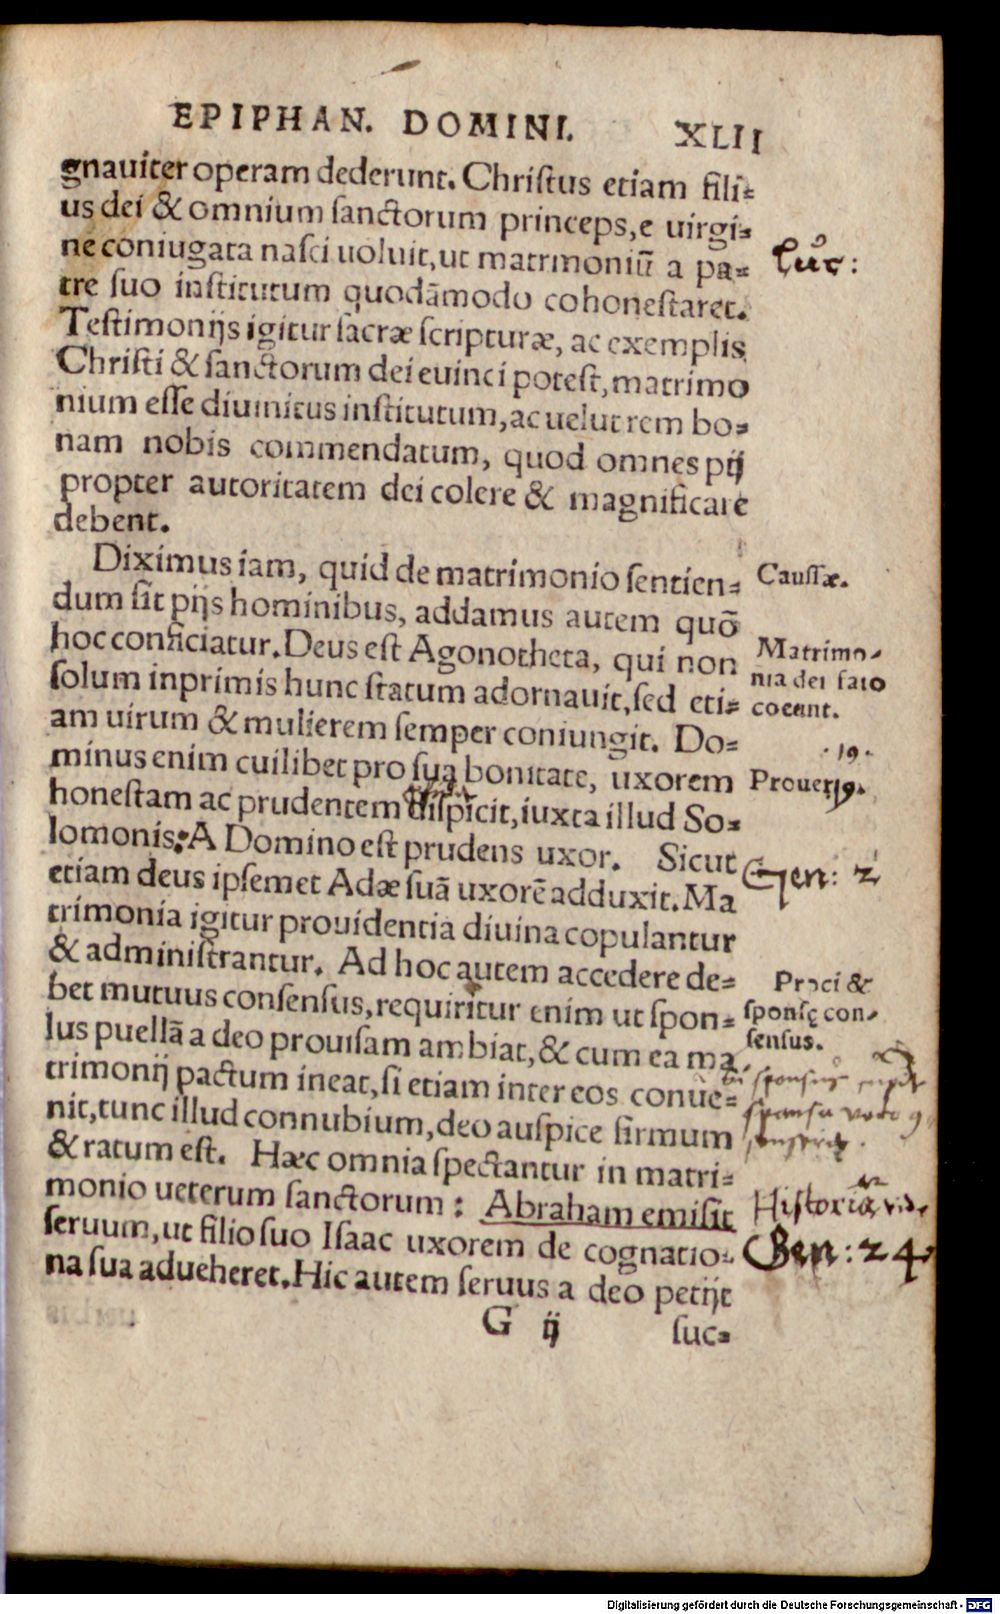 EPIPHAN. DOMINI. XLII
gnauiter operam dederunt. Chriſtus etiam fili⸗
us dei & omnium ſanctorum princeps, e uirgi⸗
ne coniugata naſci uoluit, ut matrmoniū a pa⸗
Luc:
tre ſuo inſtitutum quodāmodo cohoneſtaret.
Teſtimonijs igitur ſacræ ſcripturæ, ac exemplis
Chriſti & ſanctorum dei euinci poteſt, matrimo
nium eſſe diuinitus inſtitutum, ac uelut rem bo⸗
nam nobis commendatum, quod omnes pij
propter autoritatem dei colere & magnificare
debent.
Diximus iam, quid de matrimonio ſentien⸗
Cauſſæ.
dum ſit pijs hominibus, addamus autem quō
hoc conficiatur. Deus eſt Agonotheta, qui non
Matrimo⸗
ſolum inprimis hunc ſtatum adornauit, ſed eti⸗
nia dei fato
am uirum & mulierem ſemper coniungit. Do⸗
coeunt.
minus enim cuilibet pro ſua bonitate, uxorem
.19.
Prouer 19.
honeſtam ac prudentem diſpicit, iuxta illud So⸗
lomonis: A Domino eſt prudens uxor. Sicut
etiam deus ipſemet Adæ ſuā uxorē adduxit. Ma
Gen: 2
trimonia igitur prouidentia diuina copulantur
& adminiſtrantur. Ad hoc autem accedere de⸗
Proci &
bet mutuus conſenſus, requiritur enim ut ſpon⸗
ſponſę con⸗
ſus puellā a deo prouiſam ambiat, & cum ea ma
ſenſus.
trimonij pactum ineat, ſi etiam inter eos conue⸗
ſponſus
nit, tunc illud connubium, deo auſpice firmum
ſponſa vero
& ratum eſt. Hæc omnia ſpectantur in matri⸗
monio ueterum ſanctorum: Abraham emiſit
Hiſtoria
ſeruum, ut filio ſuo Iſaac uxorem de cognatio⸗
Gen: 24
na ſua adueheret. Hic autem ſeruus a deo petijt
G ij
ſuc⸗
Digitalisierung gefördert durch die Deutsche Forschungsgemeinschaft - DFG